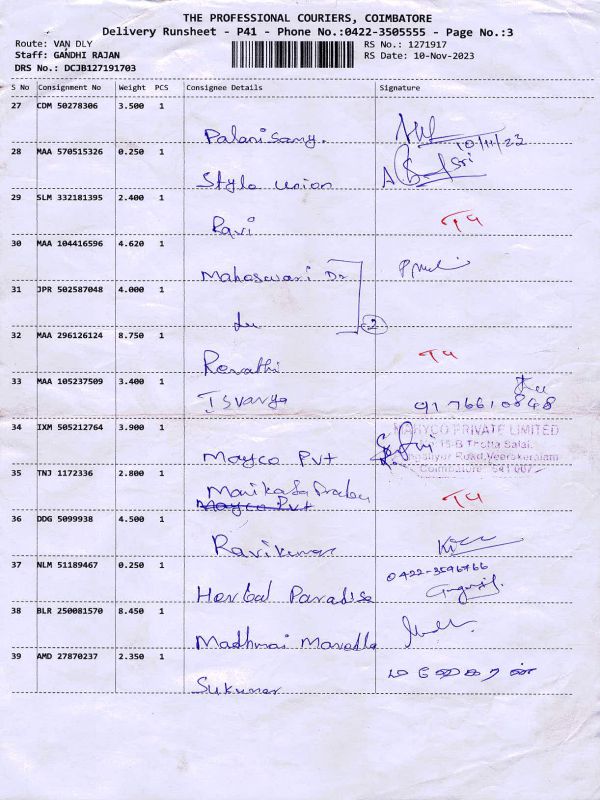 THE PROFESSIONAL COURIERS, COIMBATORE
Delivery Runsheet - P41 - Phone No.:0422-3505555 - Page No.:3
Route: VAN DLY
Staff: GANDHI RAJAN
DRS No.: DCJB127191703
RS No.: 1271917
RS Date: 10-Nov-2023
S No Consignment No Weight PCS Consignee Details Signature
27 CDM 50278306 3.500 1
Palanisamy.
10/11/23
28 MAA 570515326 0.250 1
Style Union
29 SLM 332181395 2.400 1
Ravi
30 MAA 104416596 4.620 1
Mahaswari Dr
31 JPR 502587048 4.000 1
2
32 MAA 296126124 8.750 1
Revathi
33 MAA 105237509 3.400 1
Isvarya 9176610848
34 IXM 505212764 3.900 1
MAHYCO PRIVATE LIMITED
15-B Thotta Salai,
Road, Veerakeralam
Coimbatore - 641 007
Mayco Pvt
35 TNJ 1172336 2.800 1
Mayco Pvt
36 DDG 5099938 4.500 1
Ravikumar
37 NLM 51189467 0.250 1
0422-3596766
Herbal Paradise
38 BLR 250081570 8.450 1
39 AMD 27870237 2.350 1
Sukumar